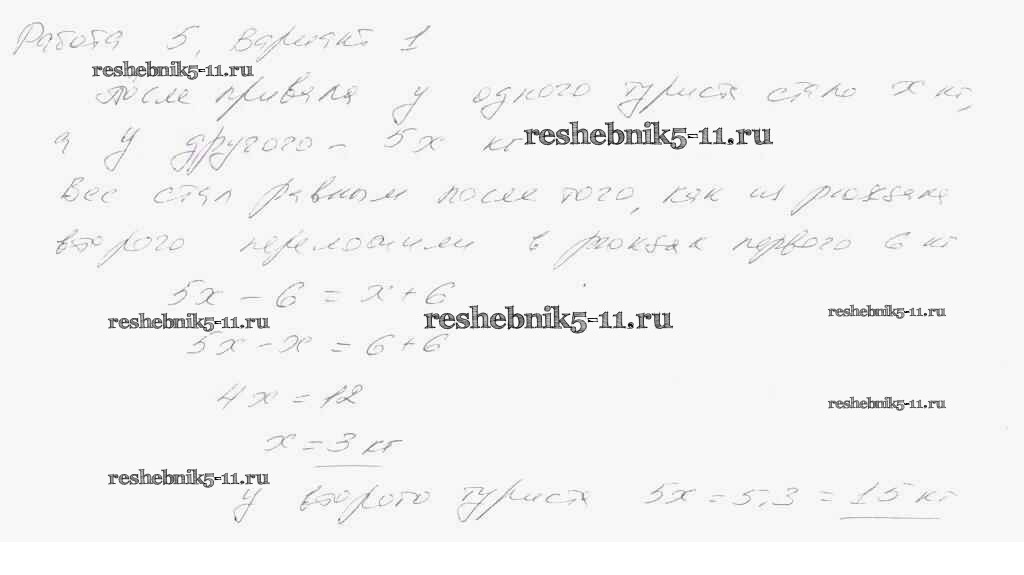 Работа 5, Вариант 1
reshebnik5-11.ru
после привала у одного туриста стало x кг,
а у другого - 5x кг reshebnik5-11.ru
Вес стал равным после того, как из рюкзака
второго переложили в рюкзак первого 6 кг
5x - 6 = x + 6
reshebnik5-11.ru reshebnik5-11.ru reshebnik5-11.ru
5x - x = 6 + 6
4x = 12
reshebnik5-11.ru
x = 3 кг
reshebnik5-11.ru
у второго туриста 5x = 5·3 = 15 кг